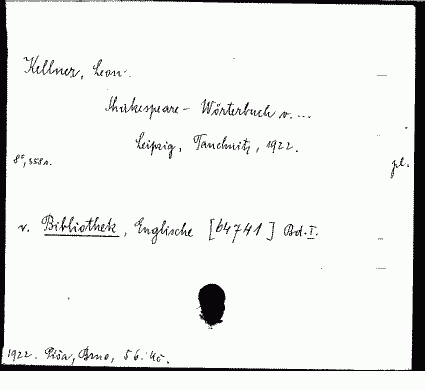 Kellner, Leon.
Shakespeare – Wörterbuch v. ...
Leipzig, Tauchnitz, 1922.
8°, 358 s. pl.
v. Bibliothek, Englische [64741] Bd. I.
1922. Píša, Brno, 56.